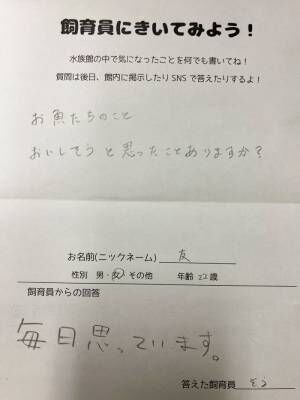 飼育員にきいてみよう！
水族館の中で気になったことを何でも書いてね！
質問は後日、館内に掲示したりSNSで答えたりするよ！
お魚たちのこと
おいしそうと思ったことありますか？
お名前(ニックネーム) 友
性別 男・女・その他 年齢 22 歳
飼育員からの回答
毎日思っています。
答えた飼育員